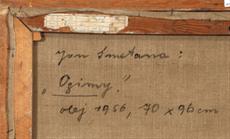 Jan Smetana:
„Ozimy."
olej 1956, 70 x 96 cm